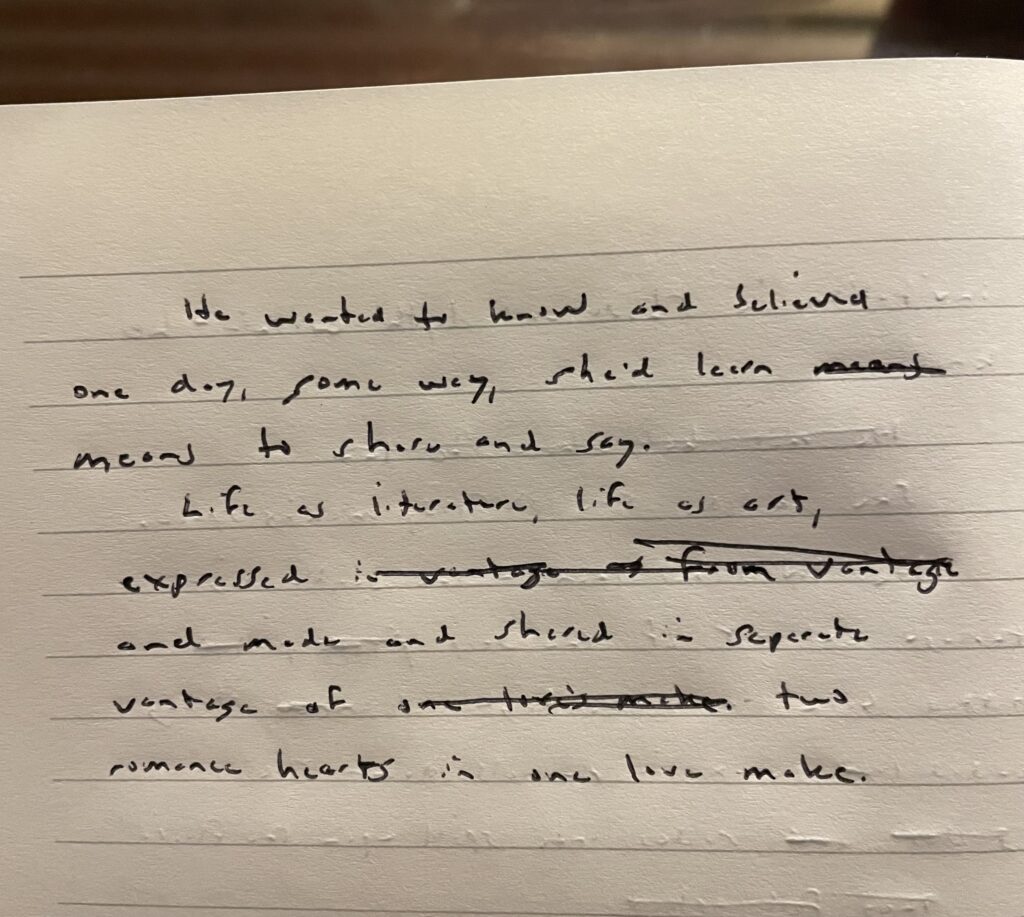 He wanted to know and believed
one day, some way, she'd learn means
means to share and say.
Life as literature, life as art,
expressed in vantage of from vantage
and made and shared in separate
vantage of one love's make. two
romance hearts in one love make.